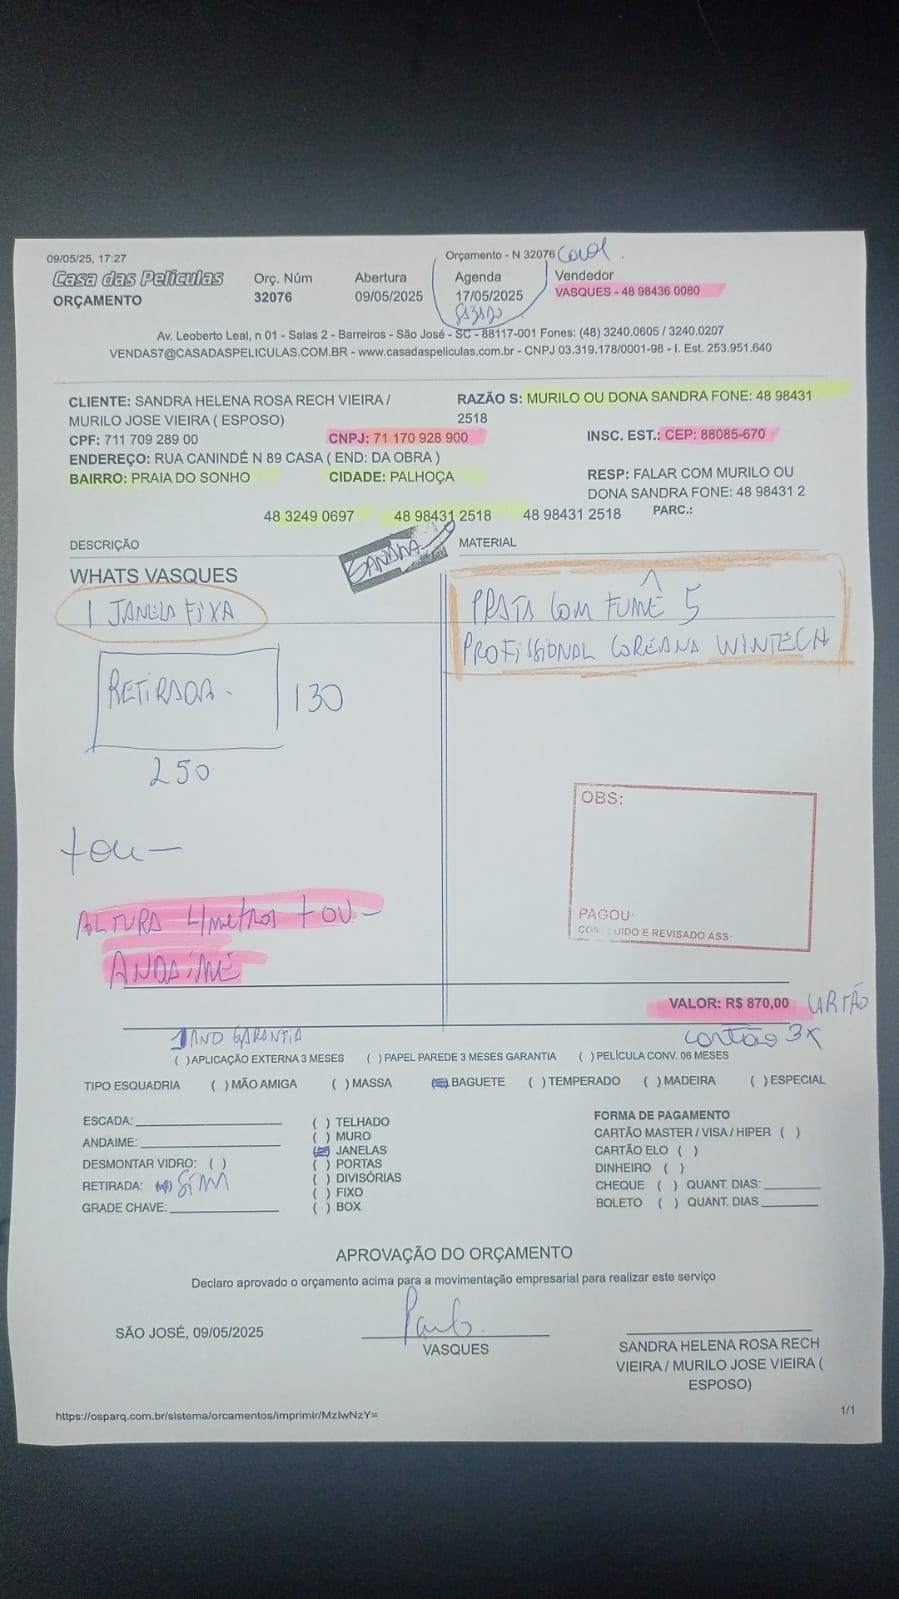 09/05/25, 17:27
Orçamento - N 32076
Casa das Películas
ORÇAMENTO
Orç. Núm
32076
Abertura
09/05/2025
Agenda
17/05/2025
SÁBADO
Vendedor
VASQUES - 48 98436 0080
Av. Leoberto Leal, n 01 - Salas 2 - Barreiros - São José - SC - 88117-001 Fones: (48) 3240.0605 / 3240.0207
VENDAS7@CASADASPELICULAS.COM.BR - www.casadaspeliculas.com.br - CNPJ 03.319.178/0001-98 - I. Est. 253.951.640
CLIENTE: SANDRA HELENA ROSA RECH VIEIRA /
MURILO JOSE VIEIRA ( ESPOSO)
RAZÃO S: MURILO OU DONA SANDRA FONE: 48 98431
2518
CPF: 711 709 289 00
CNPJ: 71 170 928 900
INSC. EST.: CEP: 88085-670
ENDEREÇO: RUA CANINDÉ N 89 CASA ( END: DA OBRA )
BAIRRO: PRAIA DO SONHO
CIDADE: PALHOÇA
RESP: FALAR COM MURILO OU
DONA SANDRA FONE: 48 98431 2
48 3249 0697 48 98431 2518 48 98431 2518
PARC.:
DESCRIÇÃO
SANDRA
MATERIAL
WHATS VASQUES
1 JANELA FIXA
PRATA COM FUMÊ 5
PROFISSIONAL COREANA WINTECH
RETIRADA - 130
250
OBS:
ALTURA 4 metros
ANDAIME
PAGOU
CONCLUIDO E REVISADO ASS
VALOR: R$ 870,00 CARTÃO
1 ANO GARANTIA
cartão 3x
( ) APLICAÇÃO EXTERNA 3 MESES ( ) PAPEL PAREDE 3 MESES GARANTIA ( ) PELÍCULA CONV. 06 MESES
TIPO ESQUADRIA ( ) MÃO AMIGA ( ) MASSA ( ) BAGUETE ( ) TEMPERADO ( ) MADEIRA ( ) ESPECIAL
ESCADA:
ANDAIME:
DESMONTAR VIDRO: ( )
RETIRADA: ( ) SIM
GRADE CHAVE:
( ) TELHADO
( ) MURO
( ) JANELAS
( ) PORTAS
( ) DIVISÓRIAS
( ) FIXO
( ) BOX
FORMA DE PAGAMENTO
CARTÃO MASTER / VISA / HIPER ( )
CARTÃO ELO ( )
DINHEIRO ( )
CHEQUE ( ) QUANT. DIAS:
BOLETO ( ) QUANT. DIAS
APROVAÇÃO DO ORÇAMENTO
Declaro aprovado o orçamento acima para a movimentação empresarial para realizar este serviço
SÃO JOSÉ, 09/05/2025
VASQUES
SANDRA HELENA ROSA RECH
VIEIRA / MURILO JOSE VIEIRA (
ESPOSO)
https://osparq.com.br/sistema/orcamentos/imprimir/MzIwNzY=
1/1